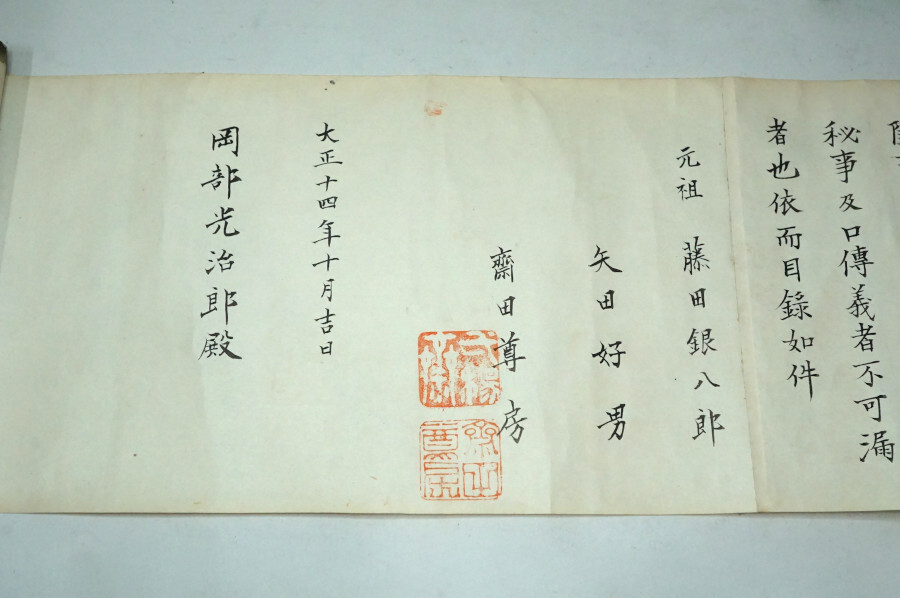 秘事及口傳義者不可漏
者也依而目錄如件
元祖 藤田銀八郎
矢田好男
齋田尊房
大正十四年十月吉日
岡部光治郎殿